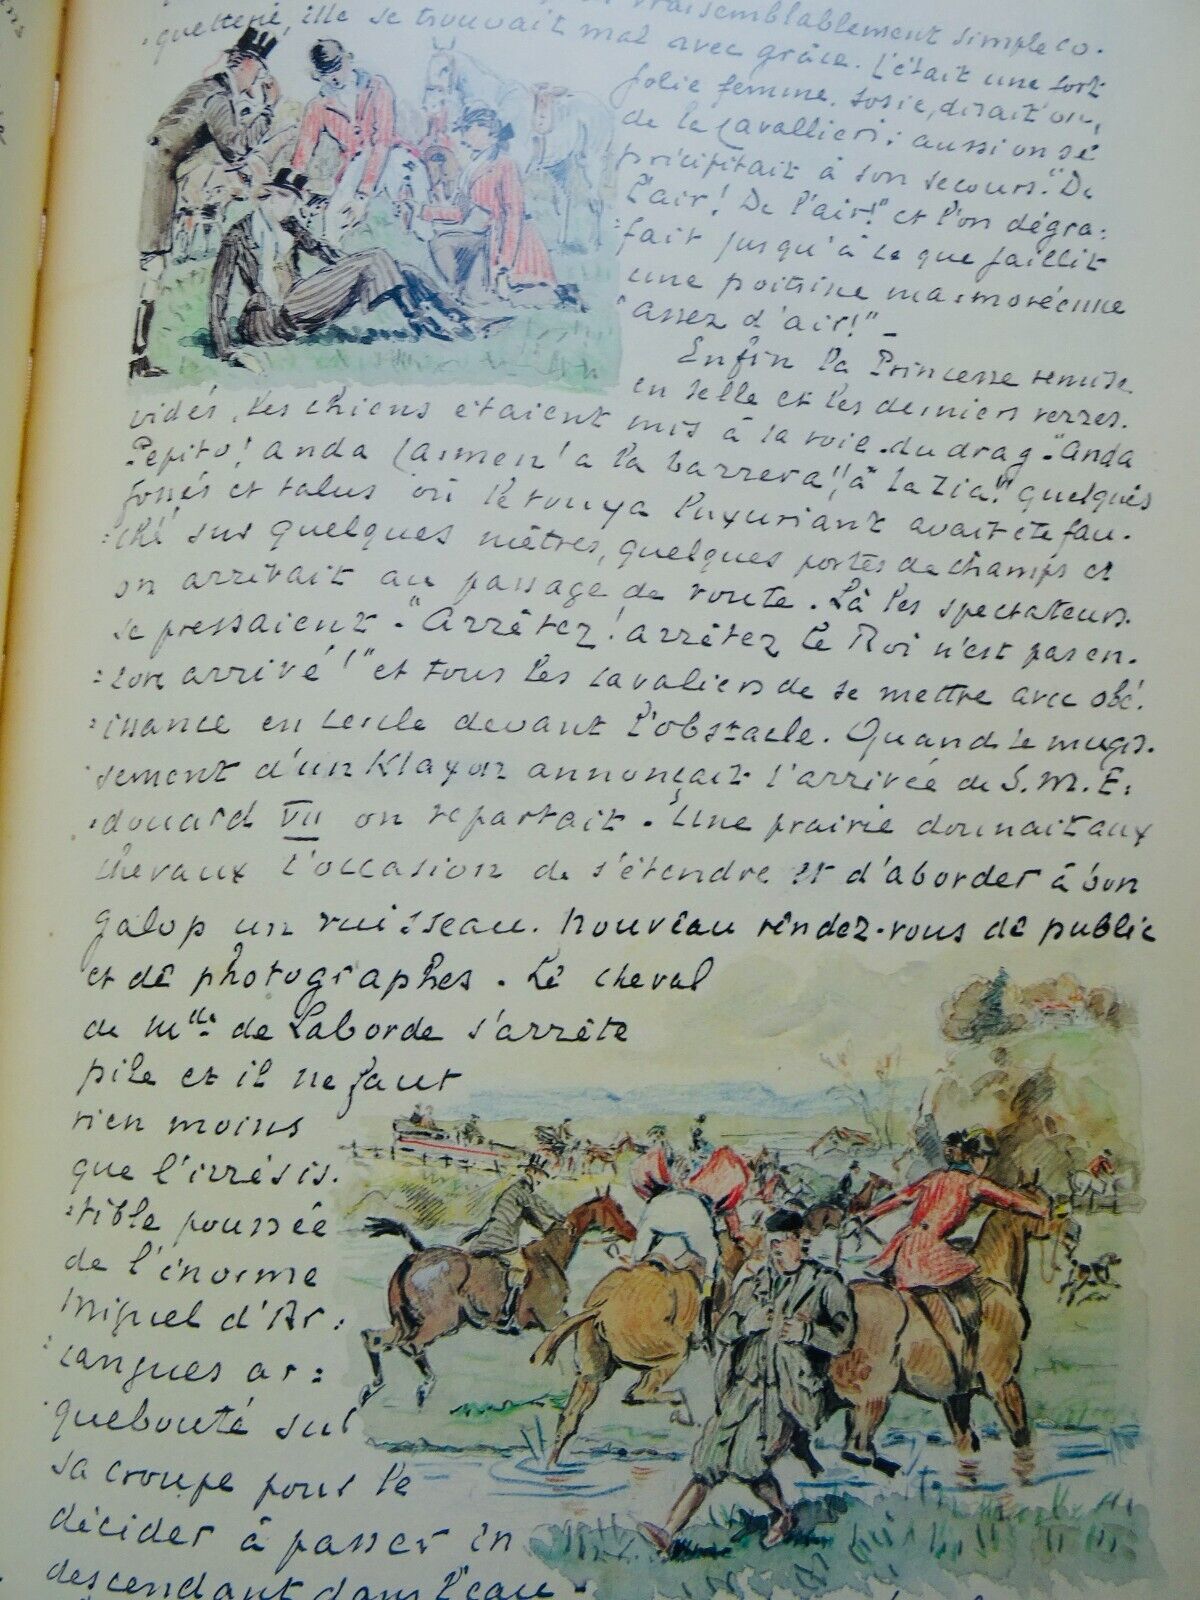 vraisemblablement simple co-
-quetterie, elle se trouvait mal avec grâce. C'était une fort
jolie femme. Sosie, dirait'on,
de la Cavallieri: aussi on se
précipitait à son secours. "De
l'air! De l'air!" et l'on dégra:
:fait jusqu'à ce que jaillit
une poitrine ma:moréenne
"Assez d'air!"_
Enfin la Princesse remise
en selle et les derniers verres
vidés, les chiens étaient mis à la voie du drag. "Anda
Pepito! Anda Carmen! a la barrera", "à la Zia!" quelques
fossés et talus où le touya luxuriant avait été fau-
:ché sur quelques mètres, quelques portes de champs et
on arrivait au passage de route. Là les spectateurs
se pressaient. "Arrêtez! arrêtez le Roi n'est pas en-
:core arrivé!" et tous les cavaliers de se mettre avec obé-
:issance en cercle devant l'obstacle. Quand le mugis-
sement d'un Klaxon annonçait l'arrivée de S.M.E:
-douard VII on repartait. Une prairie donnait aux
chevaux l'occasion de s'étendre et d'aborder à bon
galop un ruisseau. Nouveau rendez-vous de public
et de photographes. Le cheval
de Mlle de Laborde s'arrête
pile et il ne faut
rien moins
que l'irrésis-
:tible poussée
de l'énorme
Miguel d'Ar:
:cangues ar:
quebouté sur
sa croupe pour le
décider à passer en
descendant dans l'eau.